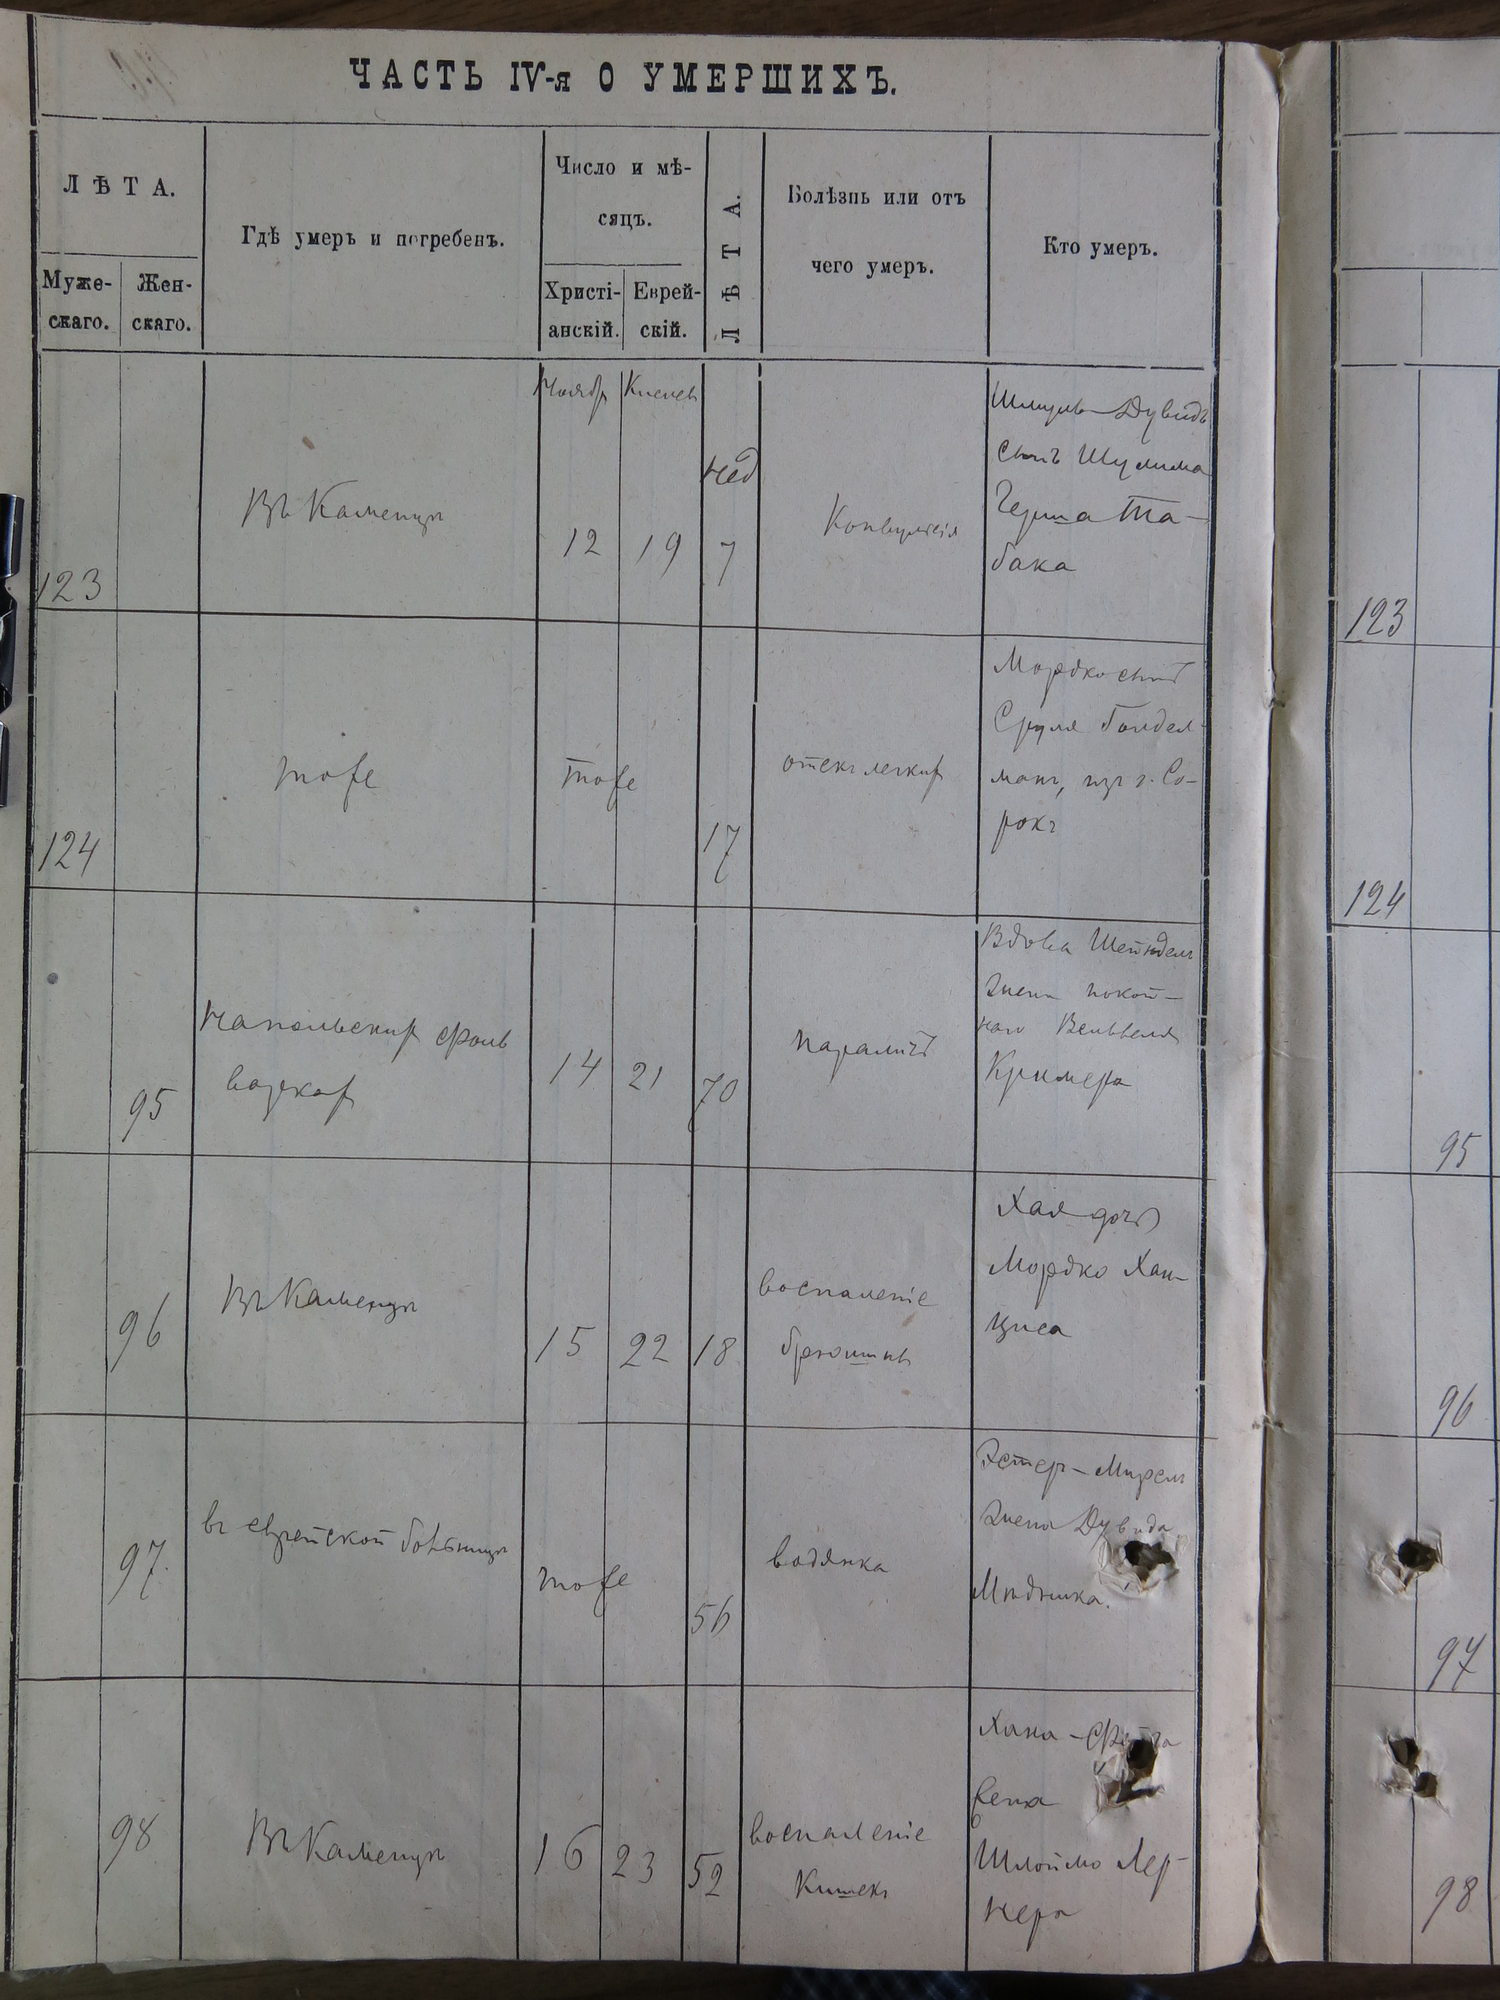 ЧАСТЬ IV-я О УМЕРШИХЪ.
ЛѢТА.
Муже-
скаго.
Жен-
скаго.
Гдѣ умеръ и погребенъ.
Число и мѣ-
сяцъ.
Христі-
анскій.
Еврей-
скій.
ЛѢТА.
Болѣзнь или отъ
чего умеръ.
Кто умеръ.
123
Въ Каменцѣ
Ноябр
Кислев
12
19
нед
7
Конвульсія
Шмуль-Дувидъ
сынъ Шулима
Герша Та-
бака
124
тоже
тоже
17
отекъ легкихъ
Мордко сынъ
Сруля Гольдел-
манъ, изъ г. Со-
рокъ
95
фоль
14
21
70
параличъ
Вдова Шейндель
жена покой-
наго Вельвеля
Кримера
96
Въ Каменцѣ
15
22
18
воспаленіе
брюшины
Хая дочь
Мордко Хан-
циса
97
въ еврейской больницѣ
тоже
56
водянка
Эстер-Мирель
жена Дувида
Мѣдника.
98
Въ Каменцѣ
16
23
52
воспаленіе
Кишекъ
Хана-
жена
Шлоймо Лер-
нера
123
124
95
96
97
98